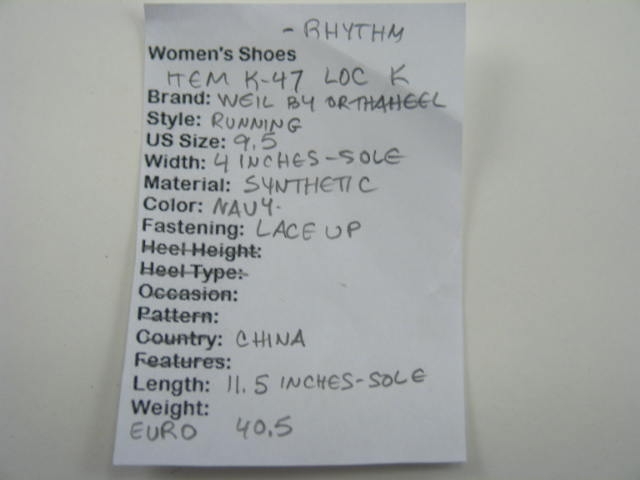 - RHYTHM
Women's Shoes
ITEM K-47 LOC K
Brand: WEIL BY ORTHAHEEL
Style: RUNNING
US Size: 9.5
Width: 4 INCHES-SOLE
Material: SYNTHETIC
Color: NAVY
Fastening: LACE UP
Heel Height:
Heel Type:
Occasion:
Pattern:
Country: CHINA
Features:
Length: 11.5 INCHES-SOLE
Weight:
EURO 40.5